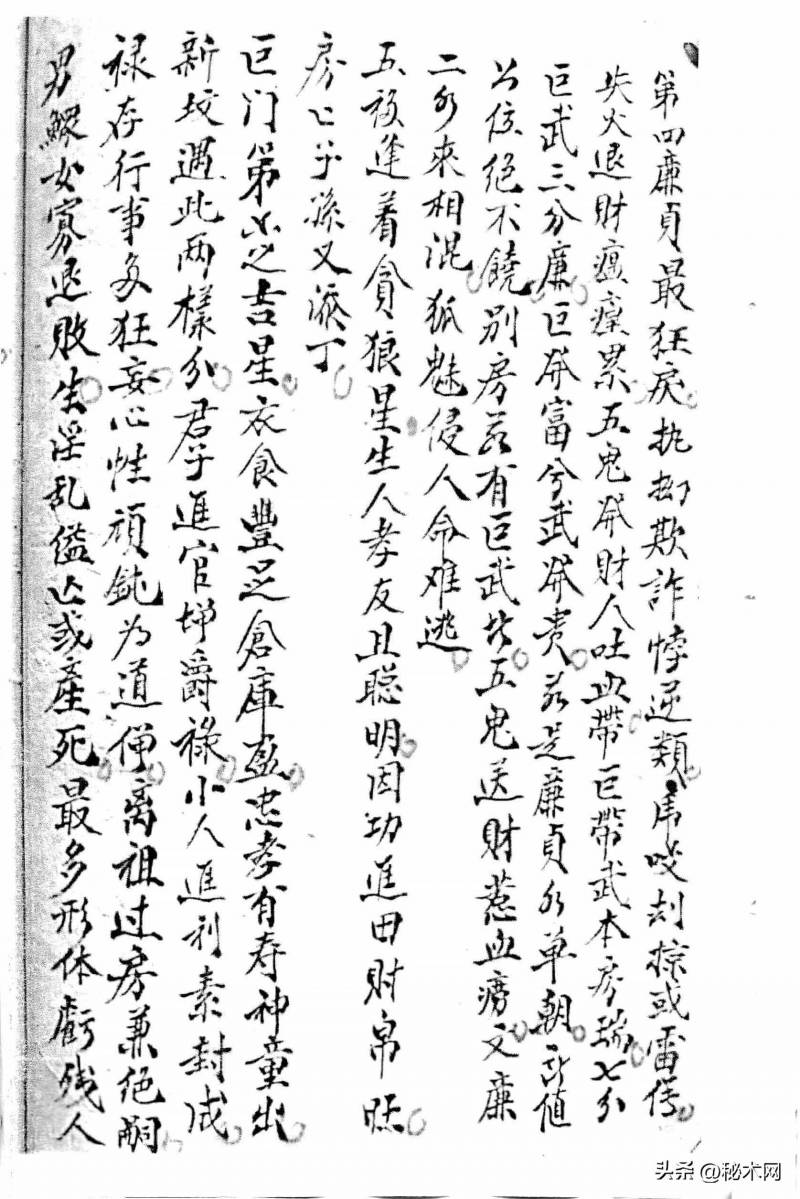 第四廉貞最狂戾执拗欺詐悖逆類虎咬劫掠或雷傷
失火退財瘟癀累五鬼發財人吐血帶巨帶武本房瑞七分
巨武三分廉巨發富兮武發贵若是廉貞水单朝所值
公位绝不饒别房若有巨武水五鬼送財惹血痨文廉
二水來相混狐魅侵人命难逃
五祿逢着貪狼星生人孝友且聪明因功進田財帛旺
房亡子孫又添丁
巨门第 之吉星衣食豐足倉庫盈忠孝有寿神童出
新坟遇此两樣分君子進官增爵祿小人進利素封成
禄存行事多狂妄心性頑鈍为道僧离祖过房兼绝嗣
男鰥女寡退敗生淫乱缢亡或產死最多形体虧残人
头条 @秘术网